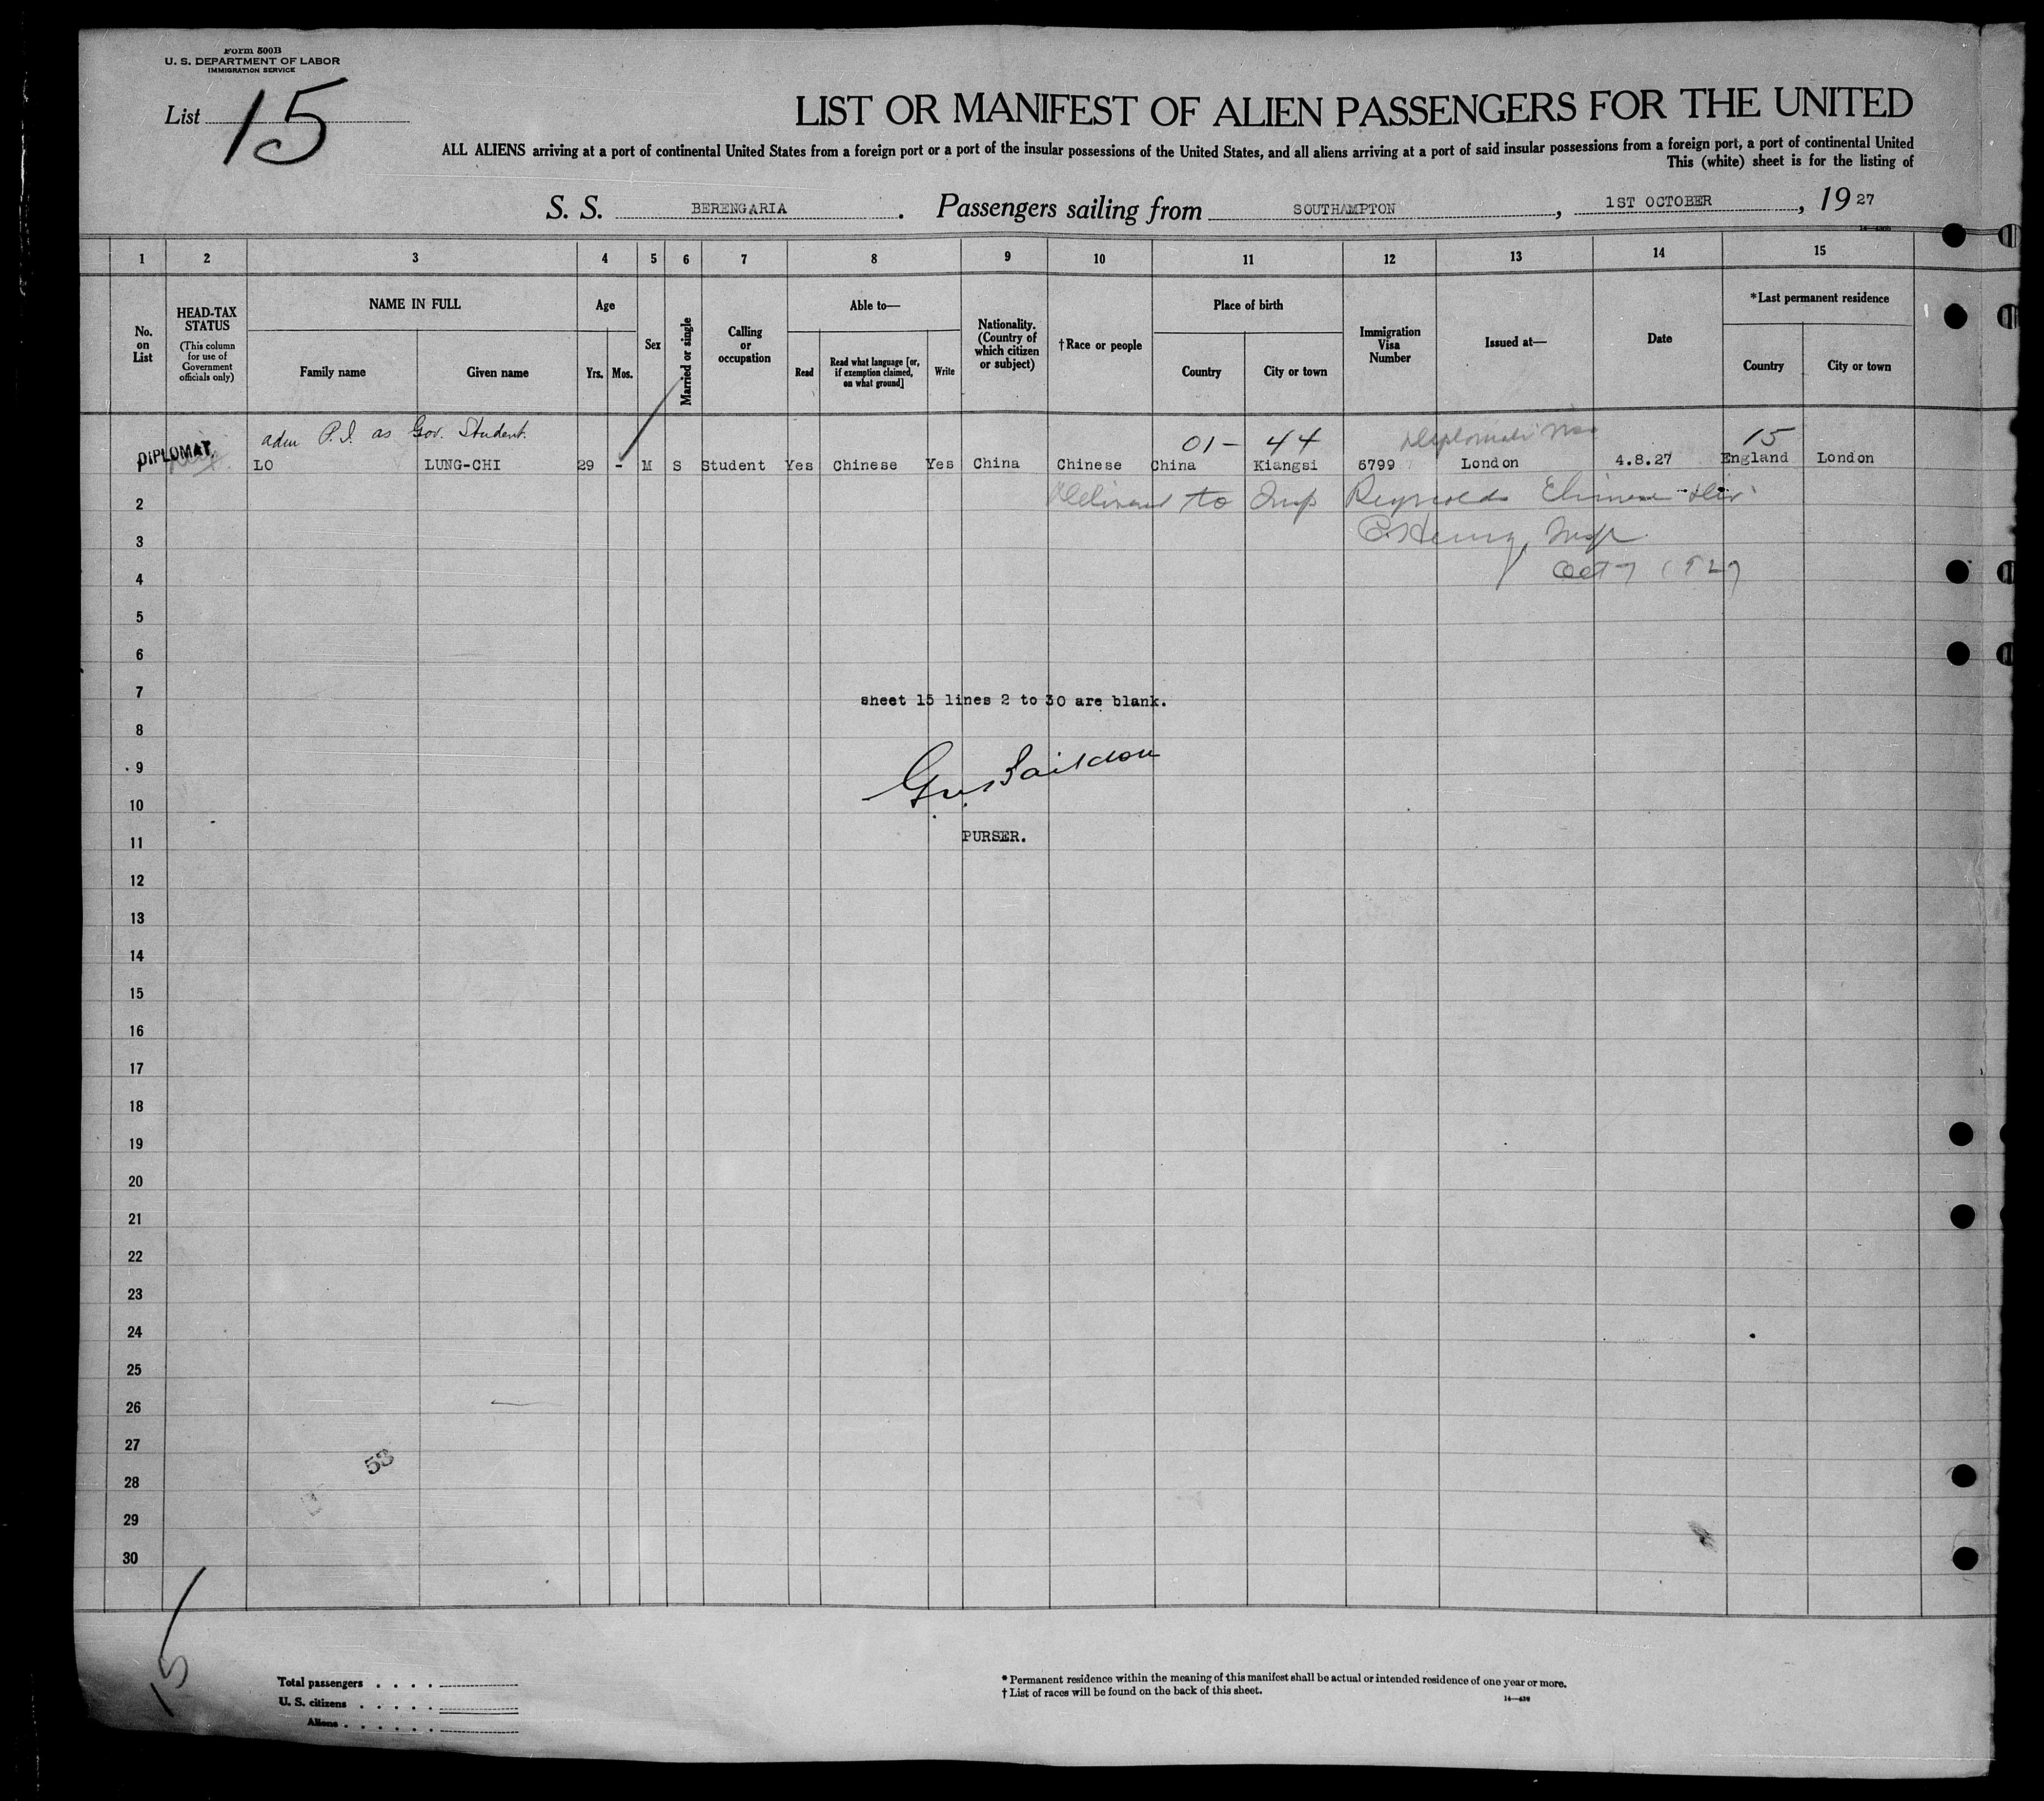 Form 500B
U. S. DEPARTMENT OF LABOR
IMMIGRATION SERVICE
List 15
LIST OR MANIFEST OF ALIEN PASSENGERS FOR THE UNITED
ALL ALIENS arriving at a port of continental United States from a foreign port or a port of the insular possessions of the United States, and all aliens arriving at a port of said insular possessions from a foreign port, a port of continental United
This (white) sheet is for the listing of
S. S. BERENGARIA. Passengers sailing from SOUTHAMPTON, 1ST OCTOBER, 1927
1 2 3 4 5 6 7 8 9 10 11 12 13 14 15
No. on List
HEAD-TAX STATUS
(This column for use of Government officials only)
NAME IN FULL
Family name
Given name
Age
Yrs. Mos.
Sex
Married or single
Calling or occupation
Able to—
Read
Read what language [or, if exemption claimed, on what ground]
Write
Nationality. (Country of which citizen or subject)
†Race or people
Place of birth
Country
City or town
Immigration Visa Number
Issued at—
Date
*Last permanent residence
Country
City or town
adm P.I. as Gov. Student.
01- 44 15
DIPLOMAT.
1 LO LUNG-CHI 29 - M S Student Yes Chinese Yes China Chinese China Kiangsi 6799 London 4.8.27 England London
2 to Insp Reynolds Chinese Div
3 Insp
4 Oct 7 1927
5
6
7 sheet 15 lines 2 to 30 are blank.
8
9
10
11 PURSER.
12
13
14
15
16
17
18
19
20
21
22
23
24
25
26
27
53
28
29
30
15
Total passengers . . . .
U. S. citizens . . . . .
Aliens . . . . . .
* Permanent residence within the meaning of this manifest shall be actual or intended residence of one year or more.
† List of races will be found on the back of this sheet.